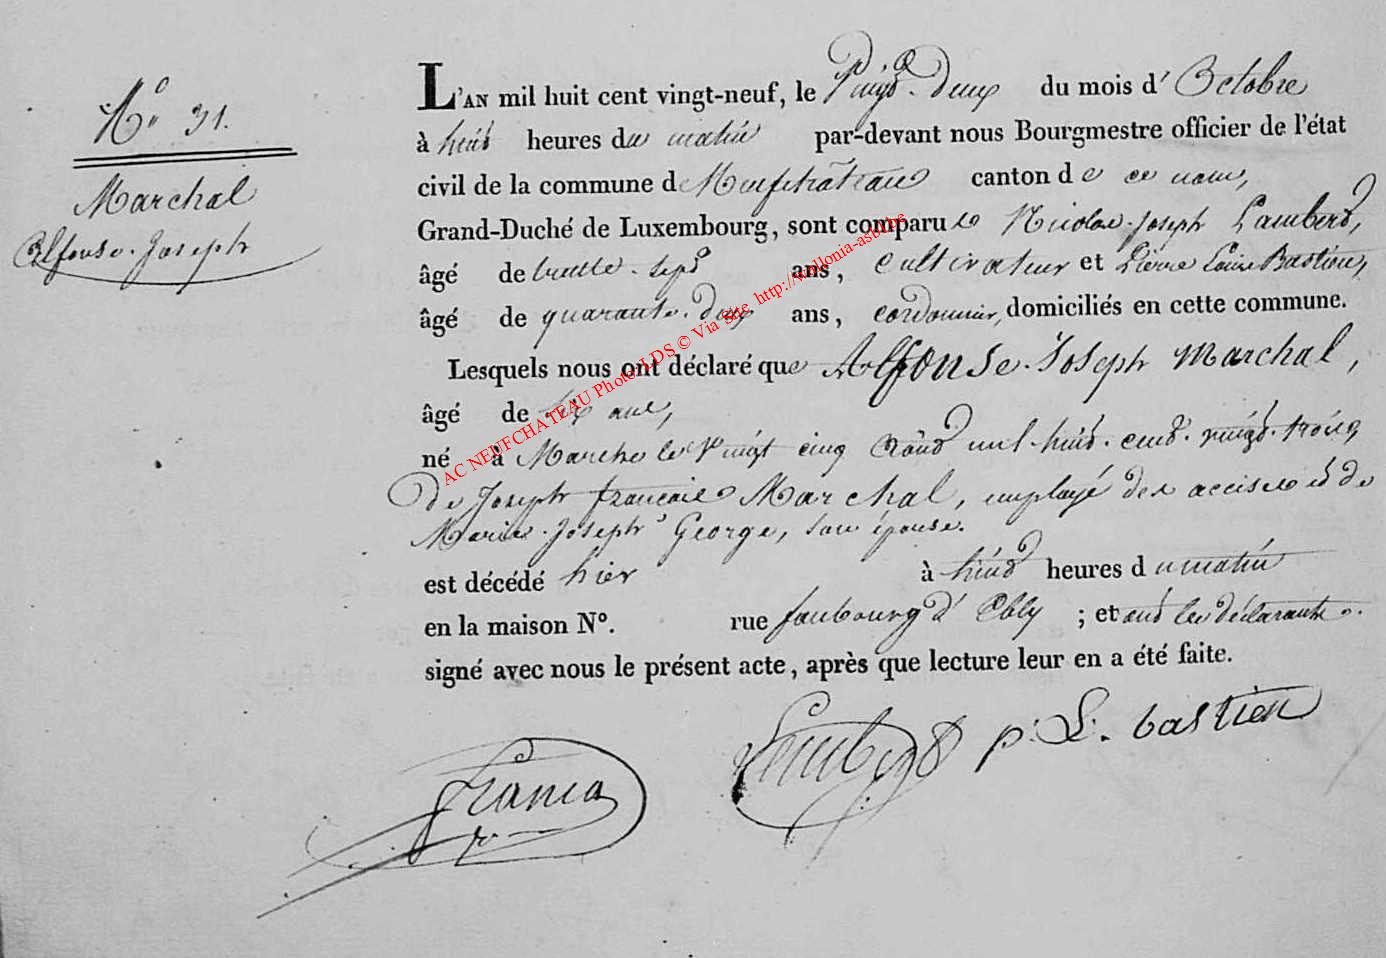 No 31.
Marchal
Alfonse-Joseph
L'AN mil huit cent vingt-neuf, le Vingt-deux du mois d'Octobre
à huit heures du matin par-devant nous Bourgmestre officier de l'état
civil de la commune de Neufchateau canton de ce nom,
Grand-Duché de Luxembourg, sont comparus Nicolas-Joseph Lambert,
âgé de trente-sept ans, cultivateur et Pierre Louis Bastien,
âgé de quarante-deux ans, cordonnier, domiciliés en cette commune.
Lesquels nous ont déclaré que Alfonse-Joseph Marchal,
âgé de six ans,
né à Marche le Vingt cinq Août mil-huit-cent-vingt-trois,
de Joseph françois Marchal, employé des accises et de
Marie-Joseph George, son épouse.
est décédé hier à huit heures du matin
en la maison No. rue faubourg d'Ebly ; et ont les déclarants
signé avec nous le présent acte, après que lecture leur en a été faite.
Lambert P:L: bastien
AC NEUFCHATEAU Photo LDS © Via Site http://wallonia-asbl.be